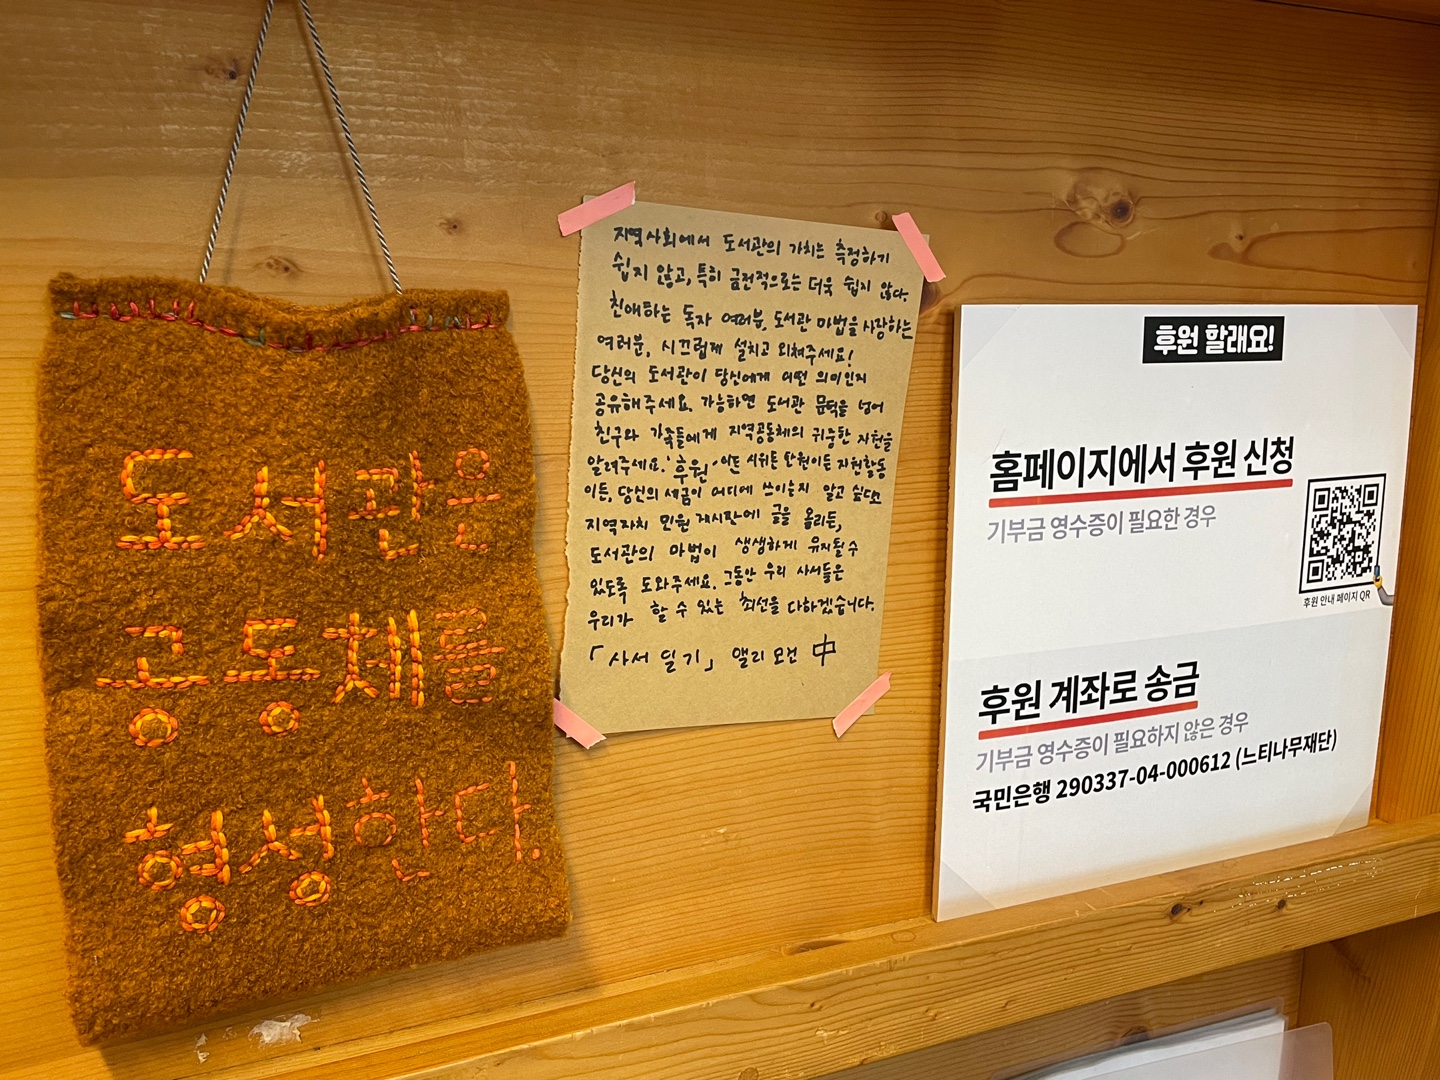 도서관은
공동체를
형성한다.
지역사회에서 도서관의 가치는 측정하기
쉽지 않고, 특히 금전적으로는 더욱 쉽지 않다.
친애하는 독자 여러분, 도서관 마법을 사랑하는
여러분, 시끄럽게 설치고 외쳐주세요!
당신의 도서관이 당신에게 어떤 의미인지
공유해주세요. 가능하면 도서관 문턱을 넘어
친구와 가족들에게 지역공동체의 귀중한 자원을
알려주세요. '후원'이든 시위든 탄원이든 지원활동
이든, 당신의 세금이 어디에 쓰이는지 알고 싶다고
지역자치 민원 게시판에 글을 올리든,
도서관의 마법이 생생하게 유지될 수
있도록 도와주세요. 그동안 우리 사서들은
우리가 할 수 있는 최선을 다하겠습니다.
「사서 일기」 앨리 모건 中
후원 할래요!
홈페이지에서 후원 신청
기부금 영수증이 필요한 경우
후원 안내 페이지 QR
후원 계좌로 송금
기부금 영수증이 필요하지 않은 경우
국민은행 290337-04-000612 (느티나무재단)